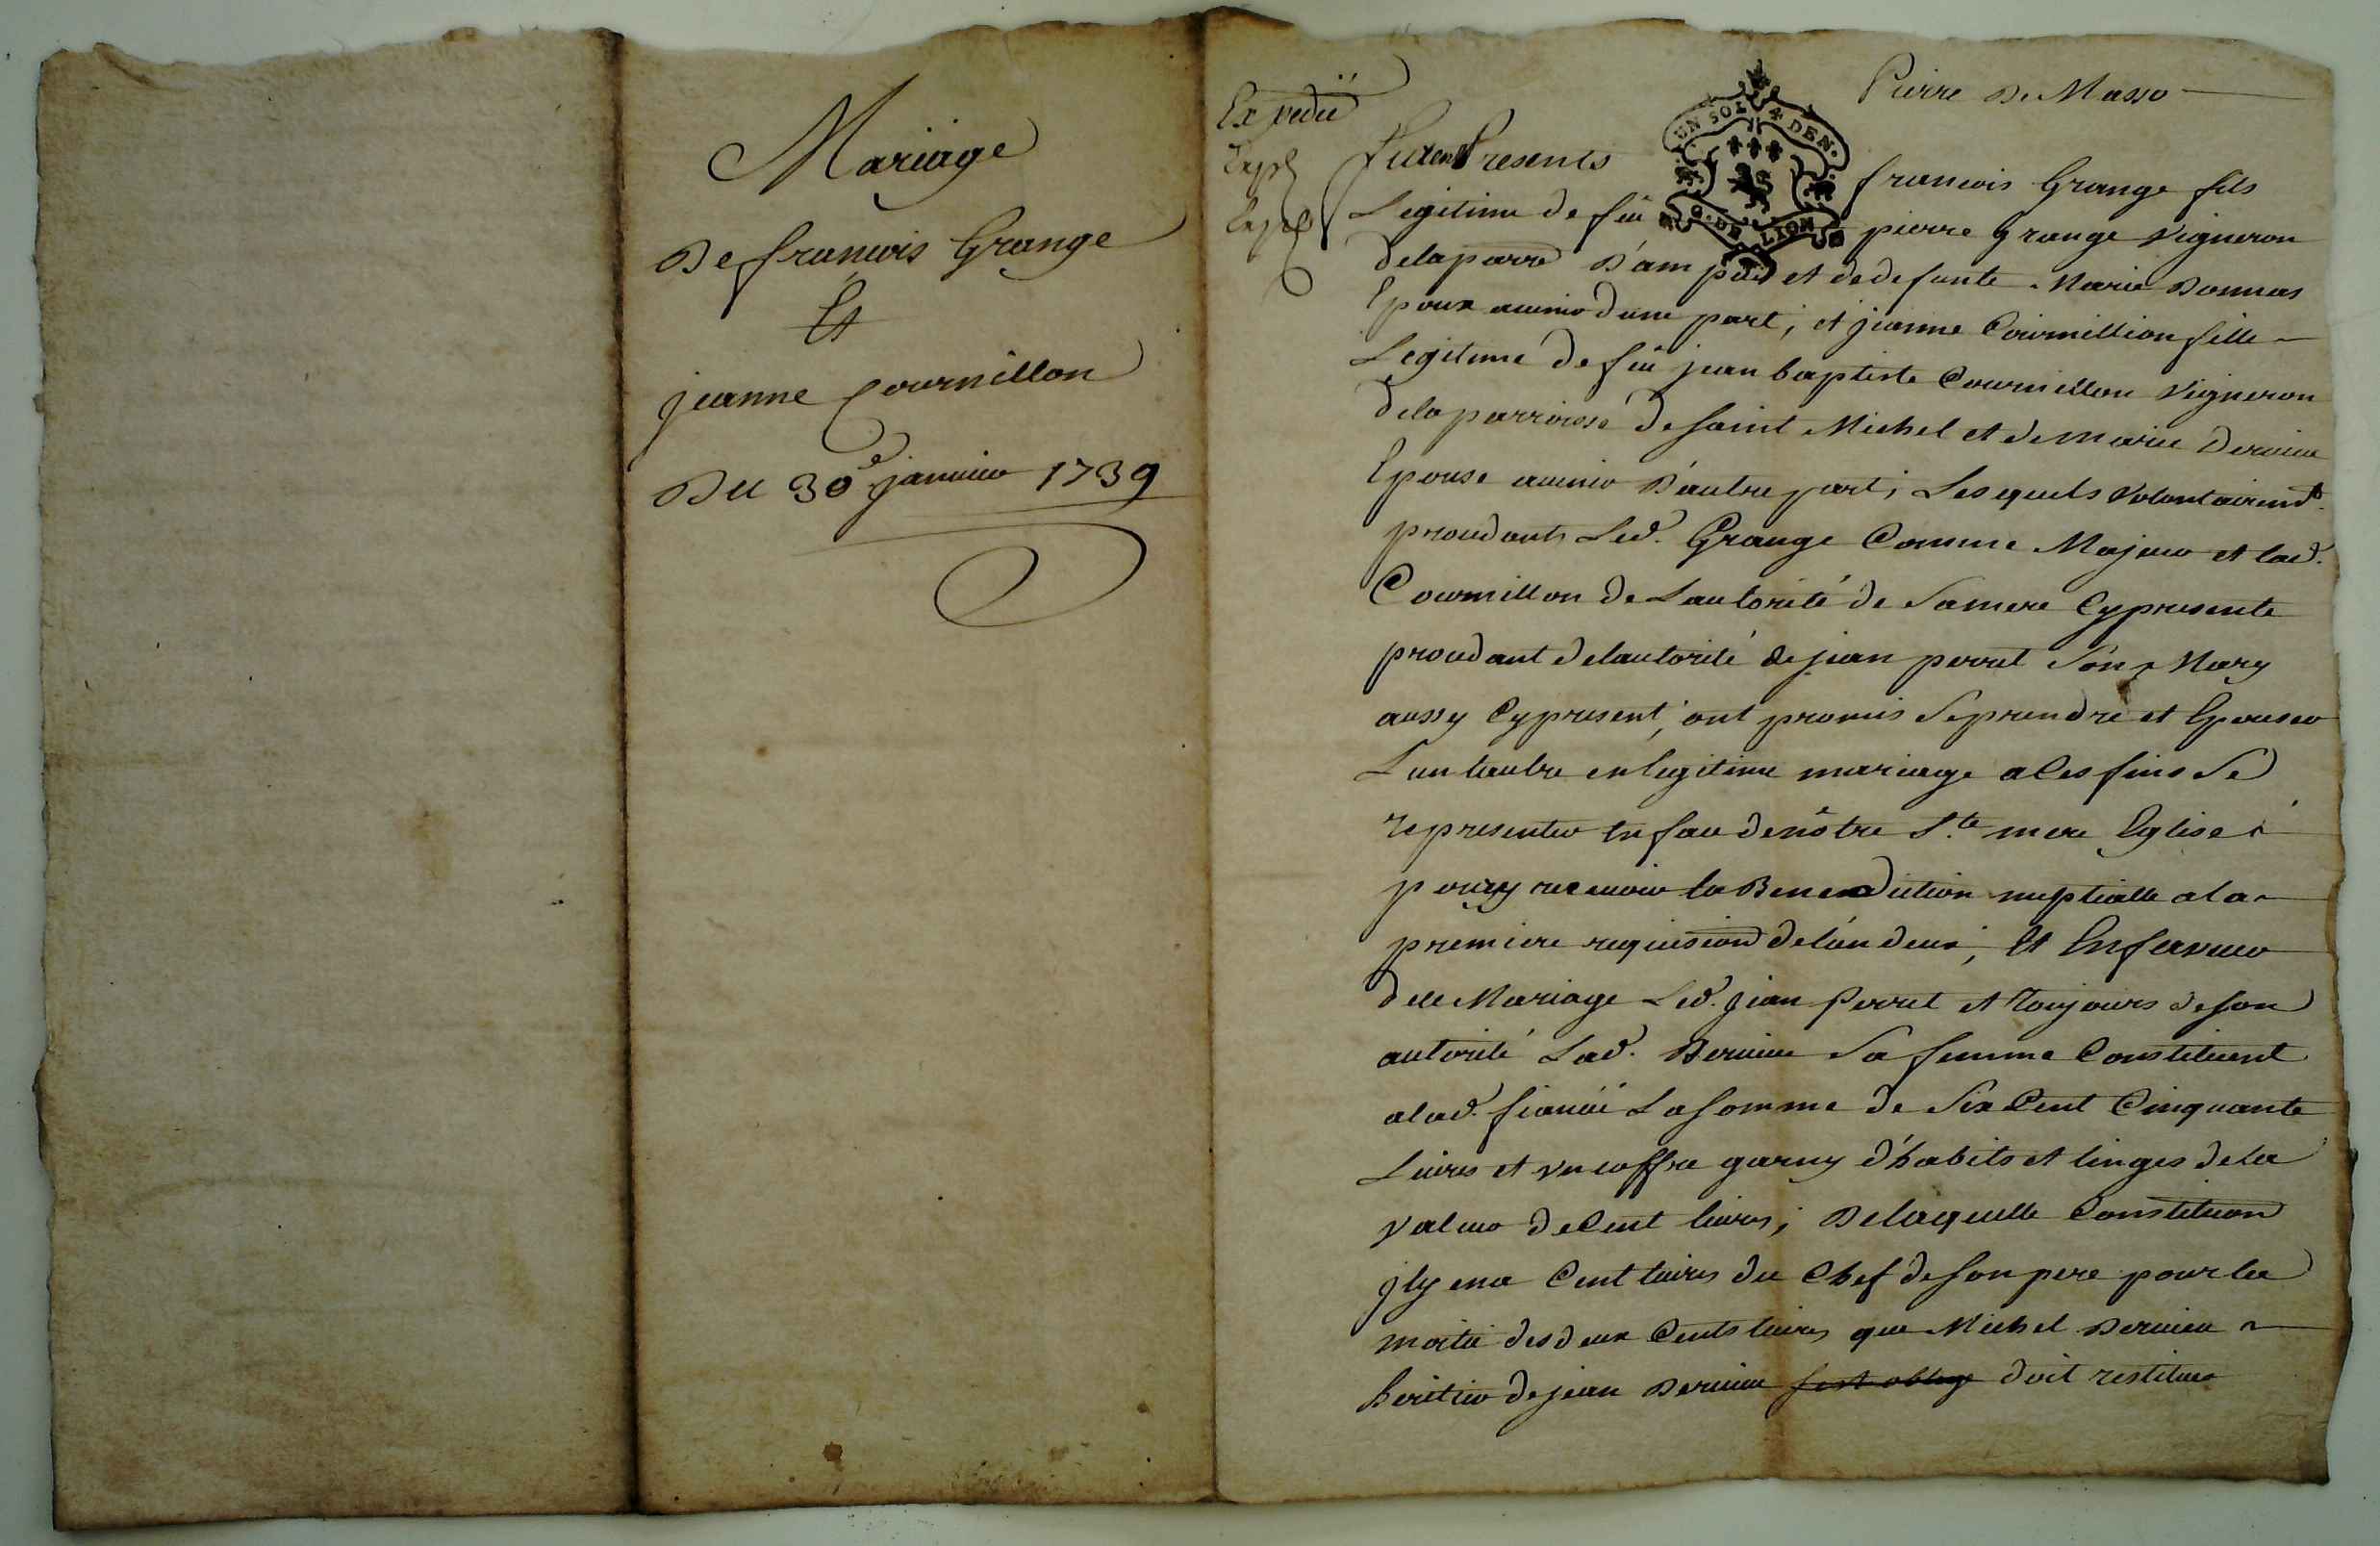 Mariage
De francois Grange
Et
jeanne Cournillon
Du 30e janvier 1739
Expedié
Expé
Pierre De Masso
furent Presents francois Grange fils
UN SOL 4 DEN.
G. DE LION
Legitime de feu pierre Grange Vigneron
delaparr D'ampuis et dedefunte Marie Bonnas
Epoux avenir dune part; et jeanne Cournillion fille
Legitime de feu jean baptiste Cournillon Vigneron
dela parroisse de saint Michel et de marie Dervieu
Epouse avenir D'autre part; Lesquels volontairemt.
procedants Led. Grange Comme Majeur et lad.
Cournillon de Lautorité de Samere Cypresente
procedant delautorité de jean perret Son Mary
aussy Cypresent, ont promis Seprendre et Epouser
L'un lautre en legitime mariage a Ces fins Se
representer en face denôtre Ste. mere Eglise
pour y recevoir la Benediction nuptialle ala
premiere requision del'un deux; Et En faveur
dece Mariage Led. jean Perret et Toujours deson
autorité Lad. Dervieu Sa femme Constituent
alad. fiancée La somme de Six Cent Cinquante
Livres et un coffre garny d'habits et linges dela
valeur de Cent livres; De laquelle Constituon
jl y ena Cent livres du Chef de son pere pour la
moitié des deux Cents livres que Michel Dervieu
heritier de jean Dervieu sest obligé doit restituer